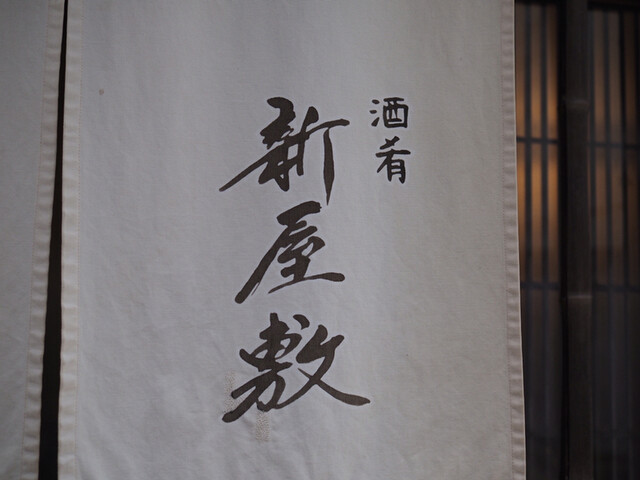 酒肴
新屋敷